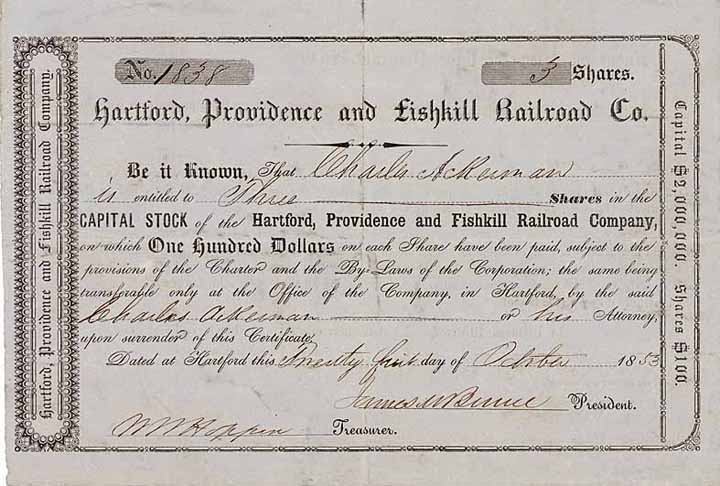 No. 1838
3 Shares.
Hartford, Providence and Fishkill Railroad Co.
Be it Known, That Charles Ackerman
is entitled to Three Shares in the
CAPITAL STOCK of the Hartford, Providence and Fishkill Railroad Company,
on which One Hundred Dollars on each Share have been paid, subject to the
provisions of the Charter and the By-Laws of the Corporation; the same being
transferable only at the Office of the Company, in Hartford, by the said
Charles Ackerman or his Attorney,
upon surrender of this Certificate.
Dated at Hartford this Twenty first day of October 1853
James President.
Treasurer.
Hartford, Providence and Fishkill Railroad Company.
Capital $2,000,000. Shares $100.